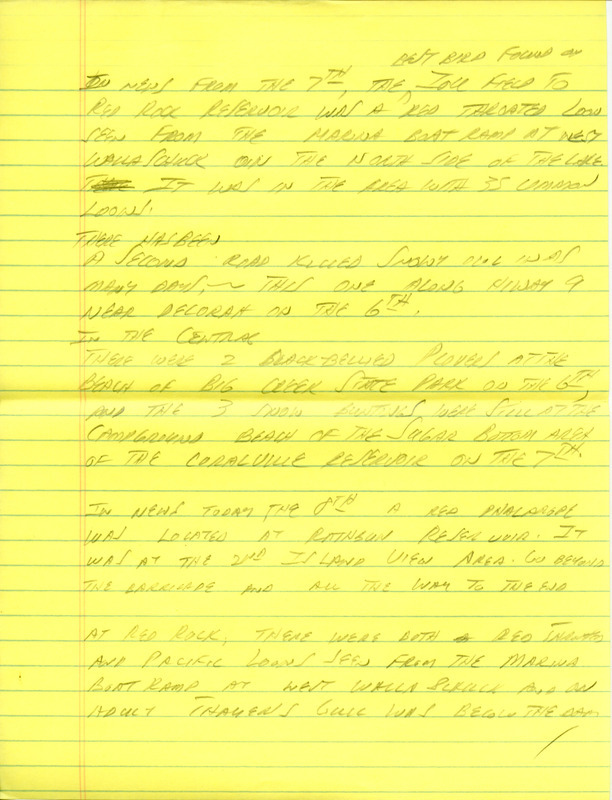 BEST BIRD FOUND ON
IN NEWS FROM THE 7TH, THE, IOU FIELD TO
RED ROCK RESERVOIR WAS A RED THROATED LOON
SEEN FROM THE MARINA BOAT RAMP AT WEST
WALLASCHUCK ON THE NORTH SIDE OF THE LAKE
IT WAS IN THE AREA WITH 35 COMMON
LOONS.
THERE HAS BEEN
A SECOND ROAD KILLED SNOWY OWL IN AS
MANY DAYS, THIS ONE ALONG HIWAY 9
NEAR DECORAH ON THE 6TH.
IN THE CENTRAL
THERE WERE 2 BLACK-BELLIED PLOVERS AT THE
BEACH OF BIG CREEK STATE PARK ON THE 6TH,
AND THE 3 SNOW BUNTINGS WERE STILL AT THE
CAMPGROUND BEACH OF THE SUGAR BOTTOM AREA
OF THE CORALVILLE RESERVOIR ON THE 7TH.
IN NEWS TODAY, THE 8TH A RED PHALAROPE
WAS LOCATED AT RATHBUN RESERVOIR. IT
WAS AT THE 2ND ISLAND VIEW AREA. GO BEYOND
THE BARRICADE AND ALL THE WAY TO THE END
AT RED ROCK, THERE WERE BOTH RED THROATED
AND PACIFIC LOONS SEEN FROM THE MARINA
BOAT RAMP AT WEST WALLASCHUCK AND AN
ADULT THAYERS GULL WAS BELOW THE DAM